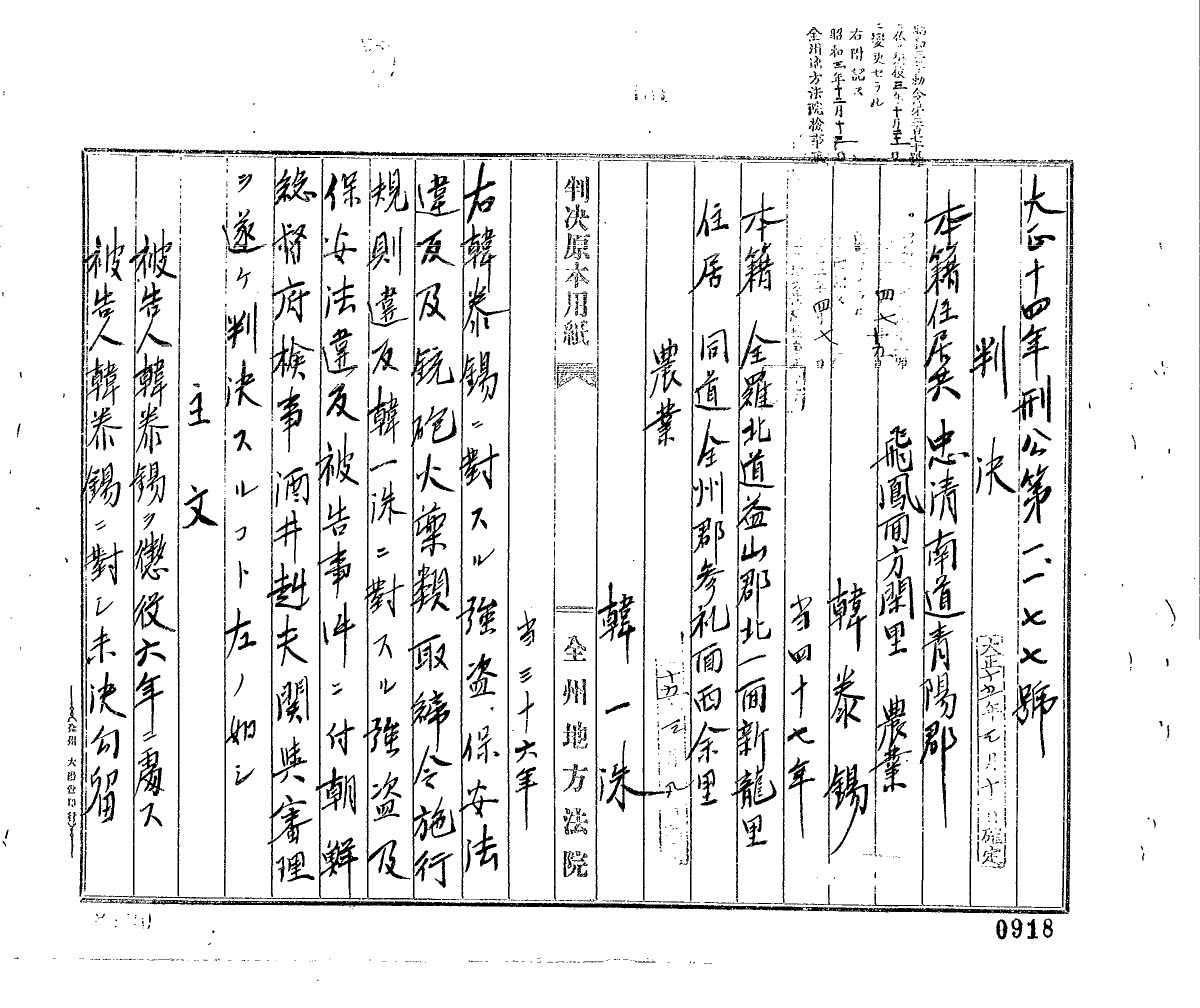 大正十四年刑公第一一七七號
判決
本籍住居共 忠清南道青陽郡
飛鳳面方閑里 農業
韓泰錫
当四十七年
本籍 全羅北道益山郡北一面新龍里
住居 同道全州郡參礼面西余里
農業
韓一洙
当三十六年
判決原本用紙 全州地方法院
右韓泰錫ニ對スル強盗、保安法
違反及銃砲火藥類取締令施行
規則違反韓一洙ニ對スル強盗及
保安法違反被告事件ニ付朝鮮
総督府検事酒井赳夫関與審理
ヲ遂ケ判決スルコト左ノ如シ
主文
被告人韓泰錫ヲ懲役六年ニ處ス
被告人韓泰錫ニ對シ未決勾留
0918